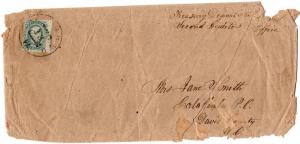 Treasury Department
Second Auditors Office
Mrs Jane Smith
Calahaln P.O.
Davie County
N.C.